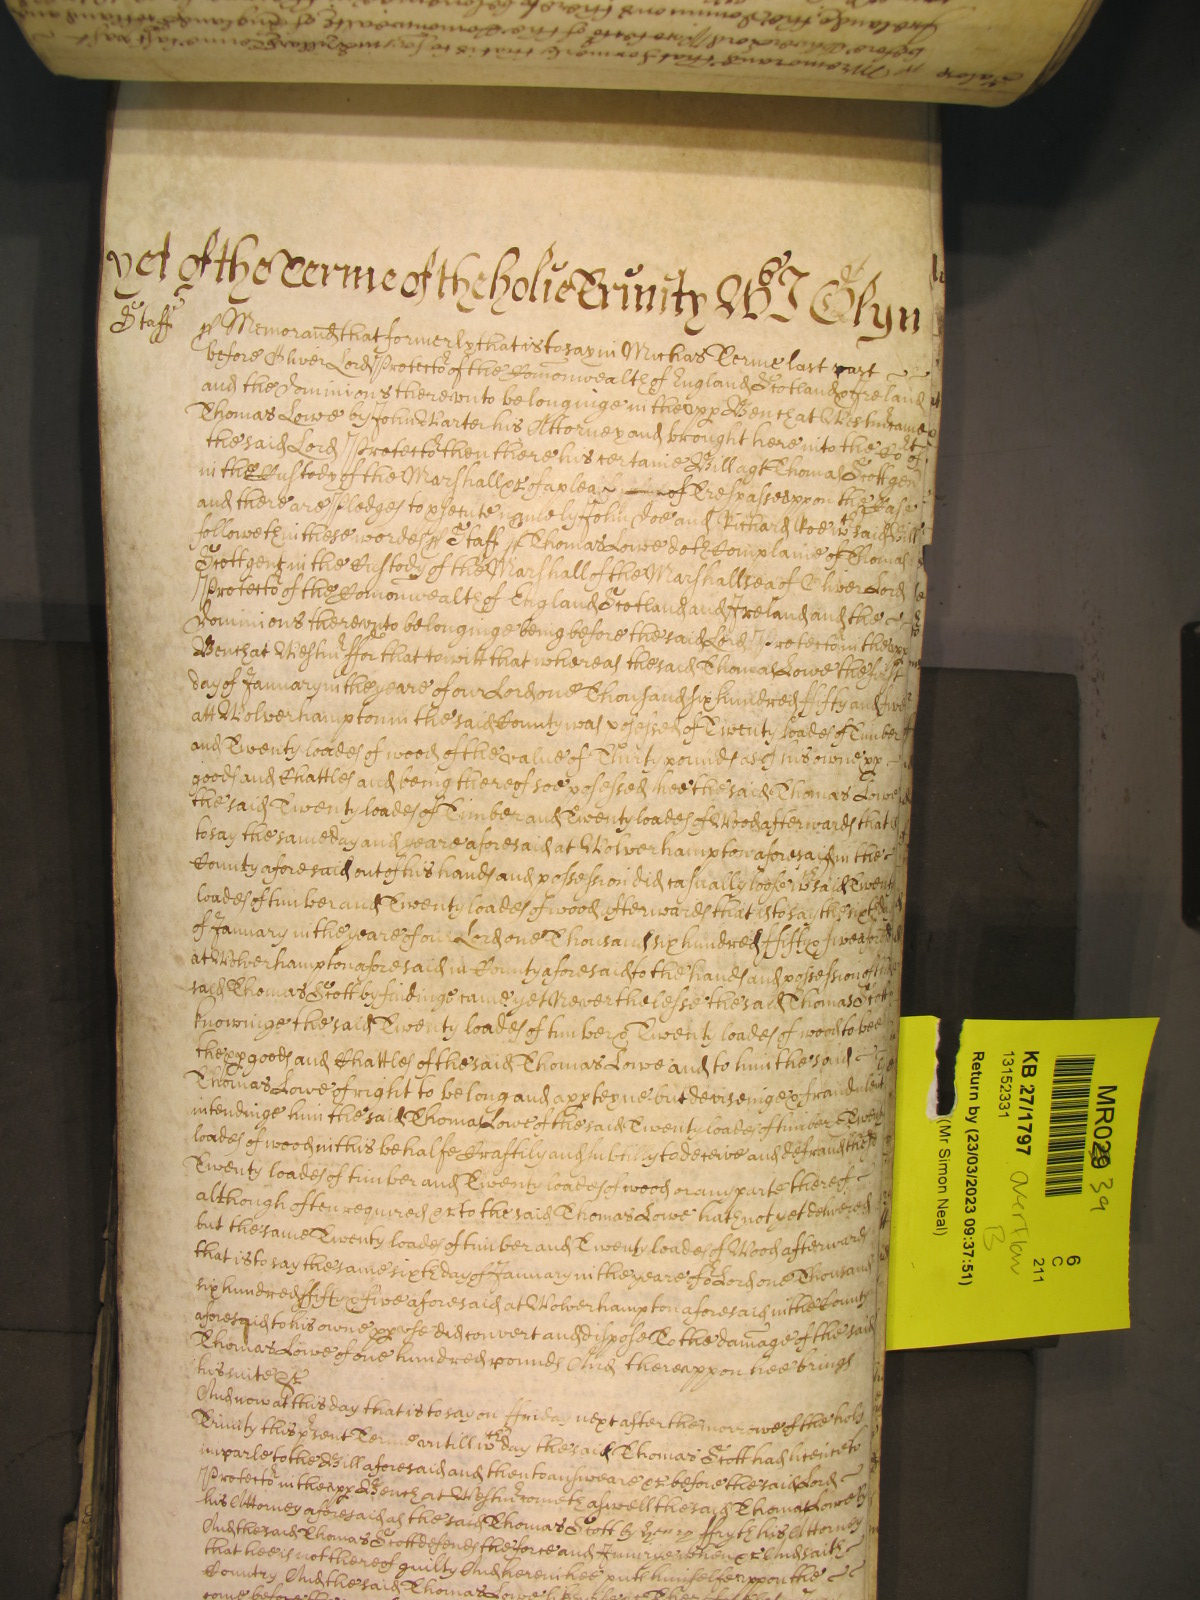 yet of the Terme of the holie Trinity Glyn
Staff
Memorand that formerly that is to say in Michas Terme last past
before Oliver Lord Protector of the Comonwealth of England Scotland & Ireland
and the dominions therevnto belonginge in the vpp Bench at Westm came
Thomas Lowe by John Carter his Attorney and brought here into the Cort of
the said Lord Protector then there his certaine Bill agt Thomas Scott gen
in the Custody of the Marshall &c of a plea of Trespasse vppon the Case
and there are Pledges to psecute namely John Doe and Richard Roe wch said Bill
followeth in these wordes Staff Thomas Lowe doth Complaine of Thomas
Scott gent in the Custody of the Marshall of the Marshallsea of Oliver Lord
Protector of the Comonwealth of England Scotland and Ireland and the
dominions therevnto belonginge being before the said Lord Protector in the vpp
Bench at Westm ffor that to witt that whereas the said Thomas Lowe the first
day of January in the yeare of our Lord one Thousand six hundred ffifty and five
att Wolverhampton in the said County was posessed of Twenty loades of Timber
and Twenty loades of wood of the value of Thirty pounds as of his owne pp
goods and Chattles and being thereof soe posessed hee the said Thomas Lowe
the said Twenty loades of Timber and Twenty loades of Wood afterwards that is
to say the same day and yeare aforesaid at Wolverhampton aforesaid in the
County aforesaid out of his hands and possession did casually loose wch said Twenty
loades of timber and Twenty loades of wood afterwards that is to say the sixth day
of January in the yeare of our Lord one Thousand six hundred ffifty & five aforesaid
at Wolverhampton aforesaid in County aforesaid to the hands and possession of the
said Thomas Scott by findinge came yet Neverthelesse the said Thomas Scott
knowinge the said Twenty loades of timber & Twenty loades of wood to bee
the pp goods and Chattles of the said Thomas Lowe and to him the said
Thomas Lowe of right to belong and apperteyne but deviseinge & fraudulent
intendinge him the said Thomas Lowe of the said Twenty loades of timber & Twenty
loades of wood in this behalfe Craftily and subtilly to deceive and defraud the sd
Twenty loades of timber and Twenty loades of wood or any parte thereof
although often required &c to the said Thomas Lowe hath not yet delivered
but the same Twenty loades of timber and Twenty loades of Wood afterwards
that is to say the same sixth day of January in the yeare of or Lord one Thousand
six hundred ffifty & five aforesaid at Wolverhampton aforesaid in the County
aforesaid to his owne pp vse did convert and dispose To the damage of the said
Thomas Lowe of one hundred pounds And therevppon hee brings
his suite &c
And now at this day that is to say on ffriday next after the morrowe of the holy
Trinity this psent Terme vntill wch day the said Thomas Scott had licence to
imparle to the Bill aforesaid and then to answeare &c before the said Lord
Protector in the vpp Bench at Westm cometh aswell the said Thomas Lowe by
his Attorney aforesaid as the said Thomas Scott by Henry ffryth his Attorney
And the said Thomas Scott defends the force and Iniury when &c And saith
that hee is not thereof guilty And herein hee putts himselfe vppon the
Country And the said Thomas Lowe
MR029 39
6
C
211
KB 27/1797 overflow B
13152331
Return by (23/03/2023 09:37:51)
(Mr Simon Neal)